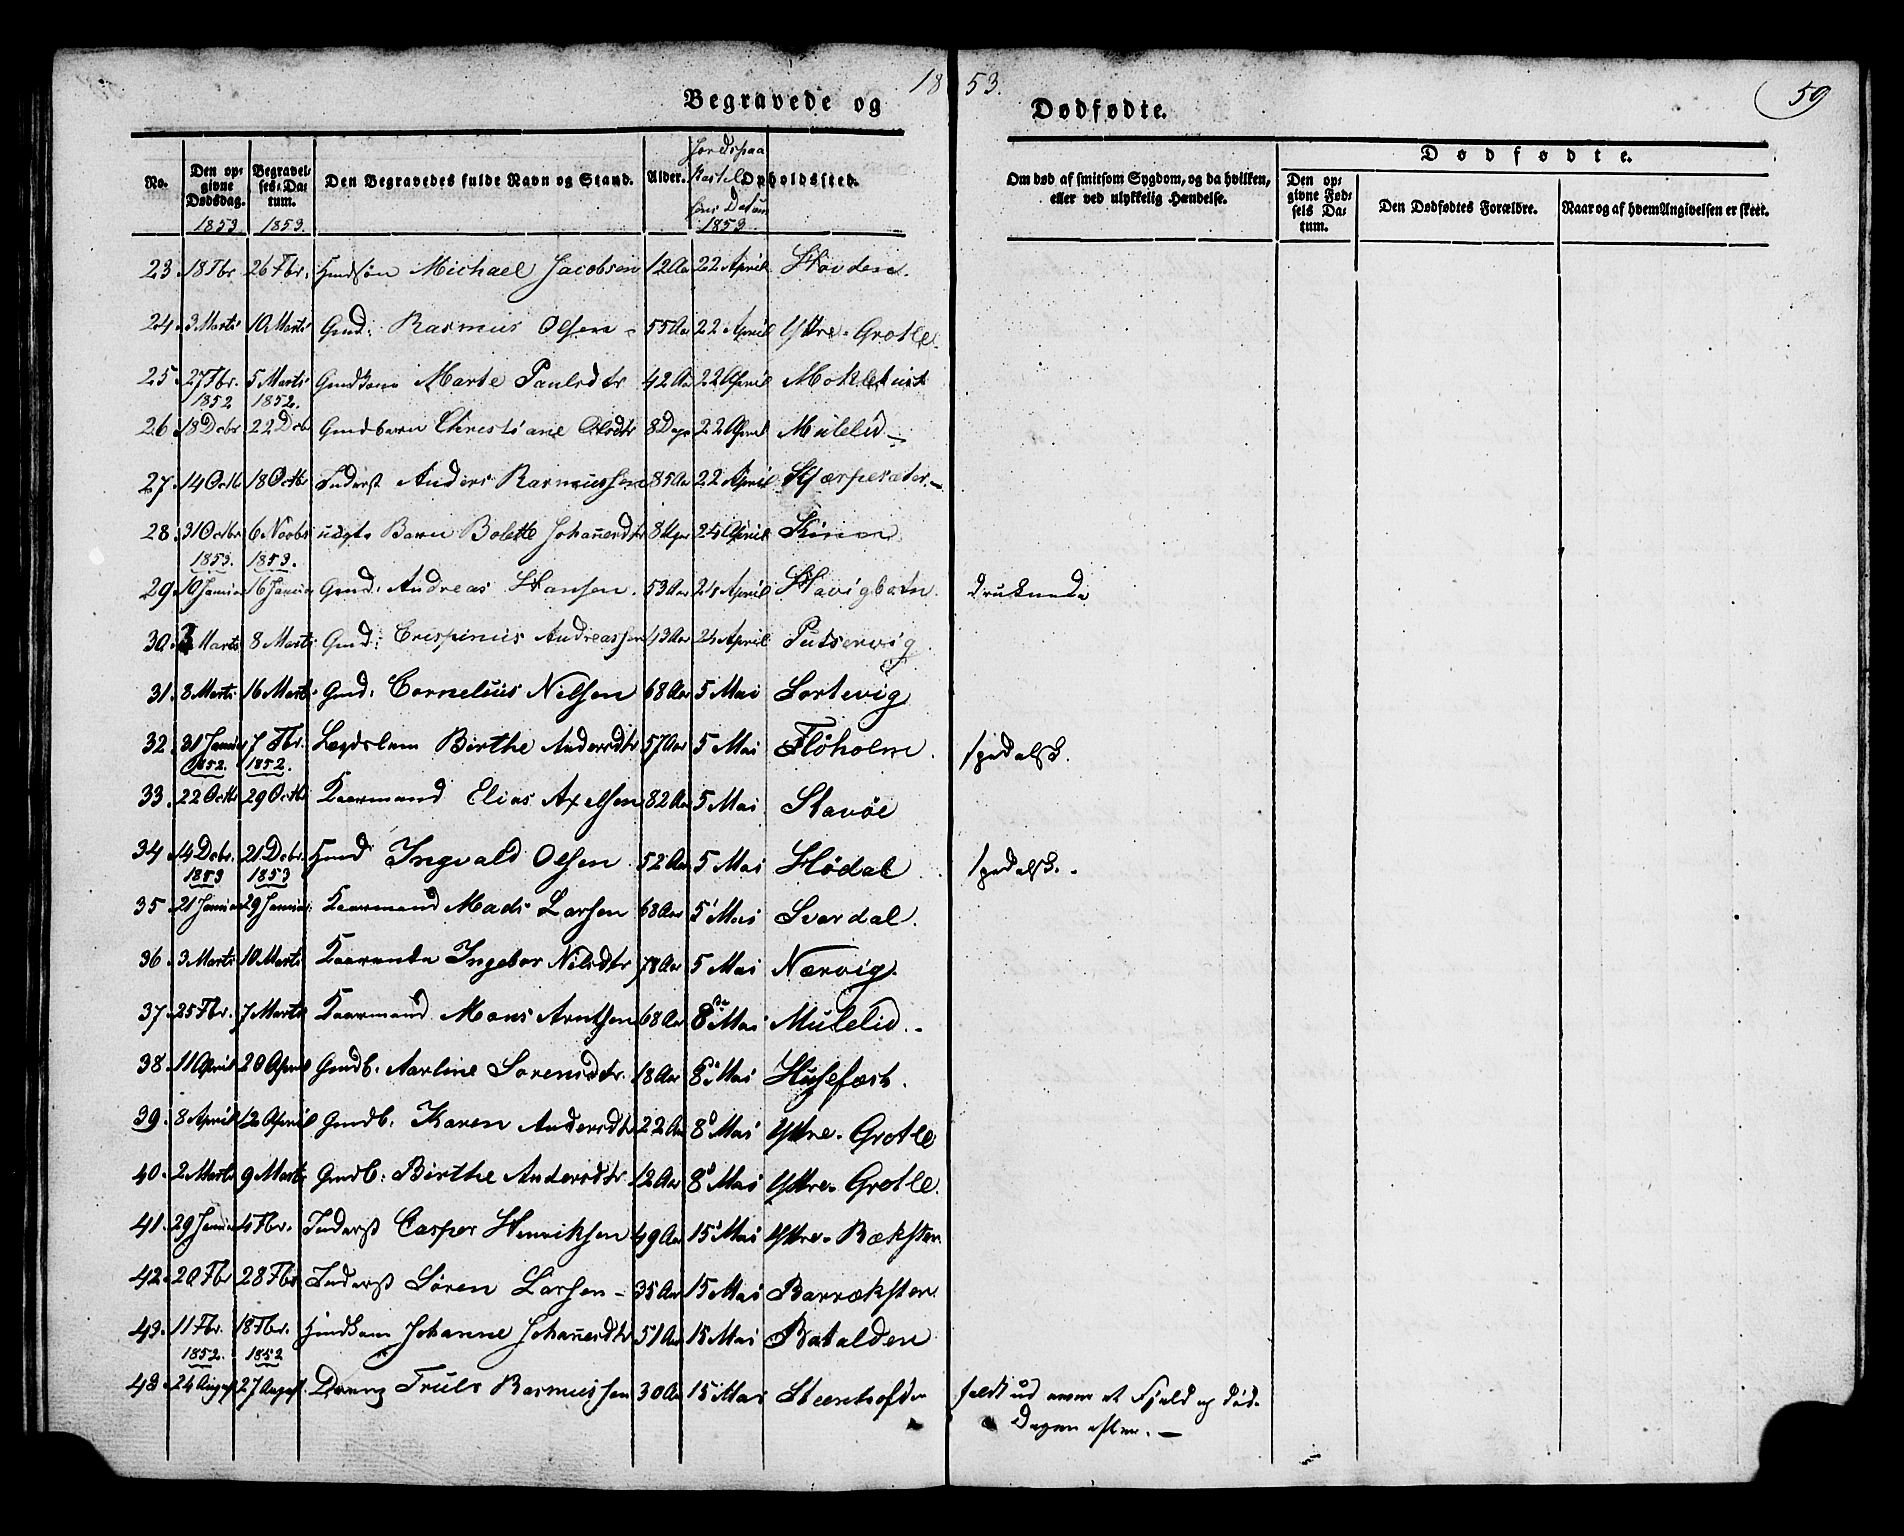 1853.
59
Begravede og Dødfødte.
No. Den opgivne Dødsdag. 1853 Begravelses-Datum. 1853. Den Begravedes fulde Navn og Stand. Alder. Jordspaa Datum 1853. Opholdssted. Om død af smitsom Sygdom, og da hvilken, eller ved ulykkelig Hændelse.
Dødfødte.
Den opgivne Fødsels Datum. Den Dødfødtes Forældre. Naar og af hvem Angivelsen er skeet.
23. 18 Fbr. 26 Fbr. Michael Jacobsen 12 Aar 22 April Hovden.
24. 3 Marts 10 Marts Gmd: Rasmus Olsen 55 Aar 22 April Yttre-Grotle.
25. 27 Fbr. 5 Marts Gmdkone Marte Paulsdtr 42 Aar 22 April Mokletust
1852 1852.
26. 18 Debr 22 Debr Gmdbarn Christiane Olsdtr 8 Dage 22 April Mulelid
27. 14 Octb 18 Octbr Inderst Anders Rasmussen 85 Aar 22 April
28. 31 Octbr 6 Novbr uægte Barn Bolette Johannesdtr 8 Uger 24 April Kinn
1853. 1853.
29. 10 Januar 16 Januar Gmd: Andreas Hansen. 53 Aar 24 April Havigbotn. druknede
30. Marts 8 Marts Gmd: Crispinus Andreassen 43 Aar 24 April
31. 8 Marts 16 Marts Gmd: Cornelius Nilsen 68 Aar 5 Mai Sortevig
32. 31 Januar 7 Fbr. Lægdslem Birthe Andersdtr 57 Aar 5 Mai Floholm. spedalsk.
1852. 1852.
33. 22 Octbr 29 Octbr Kaarmand Elias Axelsen 82 Aar 5 Mai Stavøe
34. 14 Debr. 21 Debr. Hmd Ingvald Olsen 52 Aar 5 Mai Hødal spedalsk.
1853 1853
35. 21 Januar 29 Januar Kaarmand Mads Larsen 68 Aar 5 Mai Svardal.
36. 3 Marts 10 Marts Kaarenke Ingebor Nilsdtr 78 Aar 5 Mai Nærvig.
37. 25 Fbr. 7 Marts Kaarmand Mons Arntsen 68 Aar 8 Mai Mulelid.
38. 11 April 20 April Gmdb. Aarline Sorensdtr. 18 Aar 8 Mai Husefæst.
39. 8 April 12 April Gmdb. Karen Andersdtr 22 Aar 8 Mai Yttre-Grotle
40. 2 Marts 9 Marts Gmdb: Birthe Andersdtr 12 Aar 8 Mai Yttre-Grotle.
41. 29 Januar 4 Fbr. Inderst Casper Henriksen 49 Aar 15 Mai Yttre-Bæksten
42. 20 Fbr 28 Fbr. Inderst Søren Larsen 35 Aar 15 Mai Barræksten
43. 11 Fbr. 18 Fbr. Johanne Johannesdtr 51 Aar 15 Mai Batalden
1852. 1852
48. 24 August 27 August. Dreng Truls Rasmussen 30 Aar 15 Mai faldt ud over et Fjeld og døde
Dagen efter.